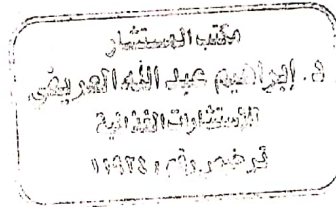 مكتب المستشار
أ. إبراهيم عبد الله العريفي
للاستشارات القانونية
ترخيص رقم